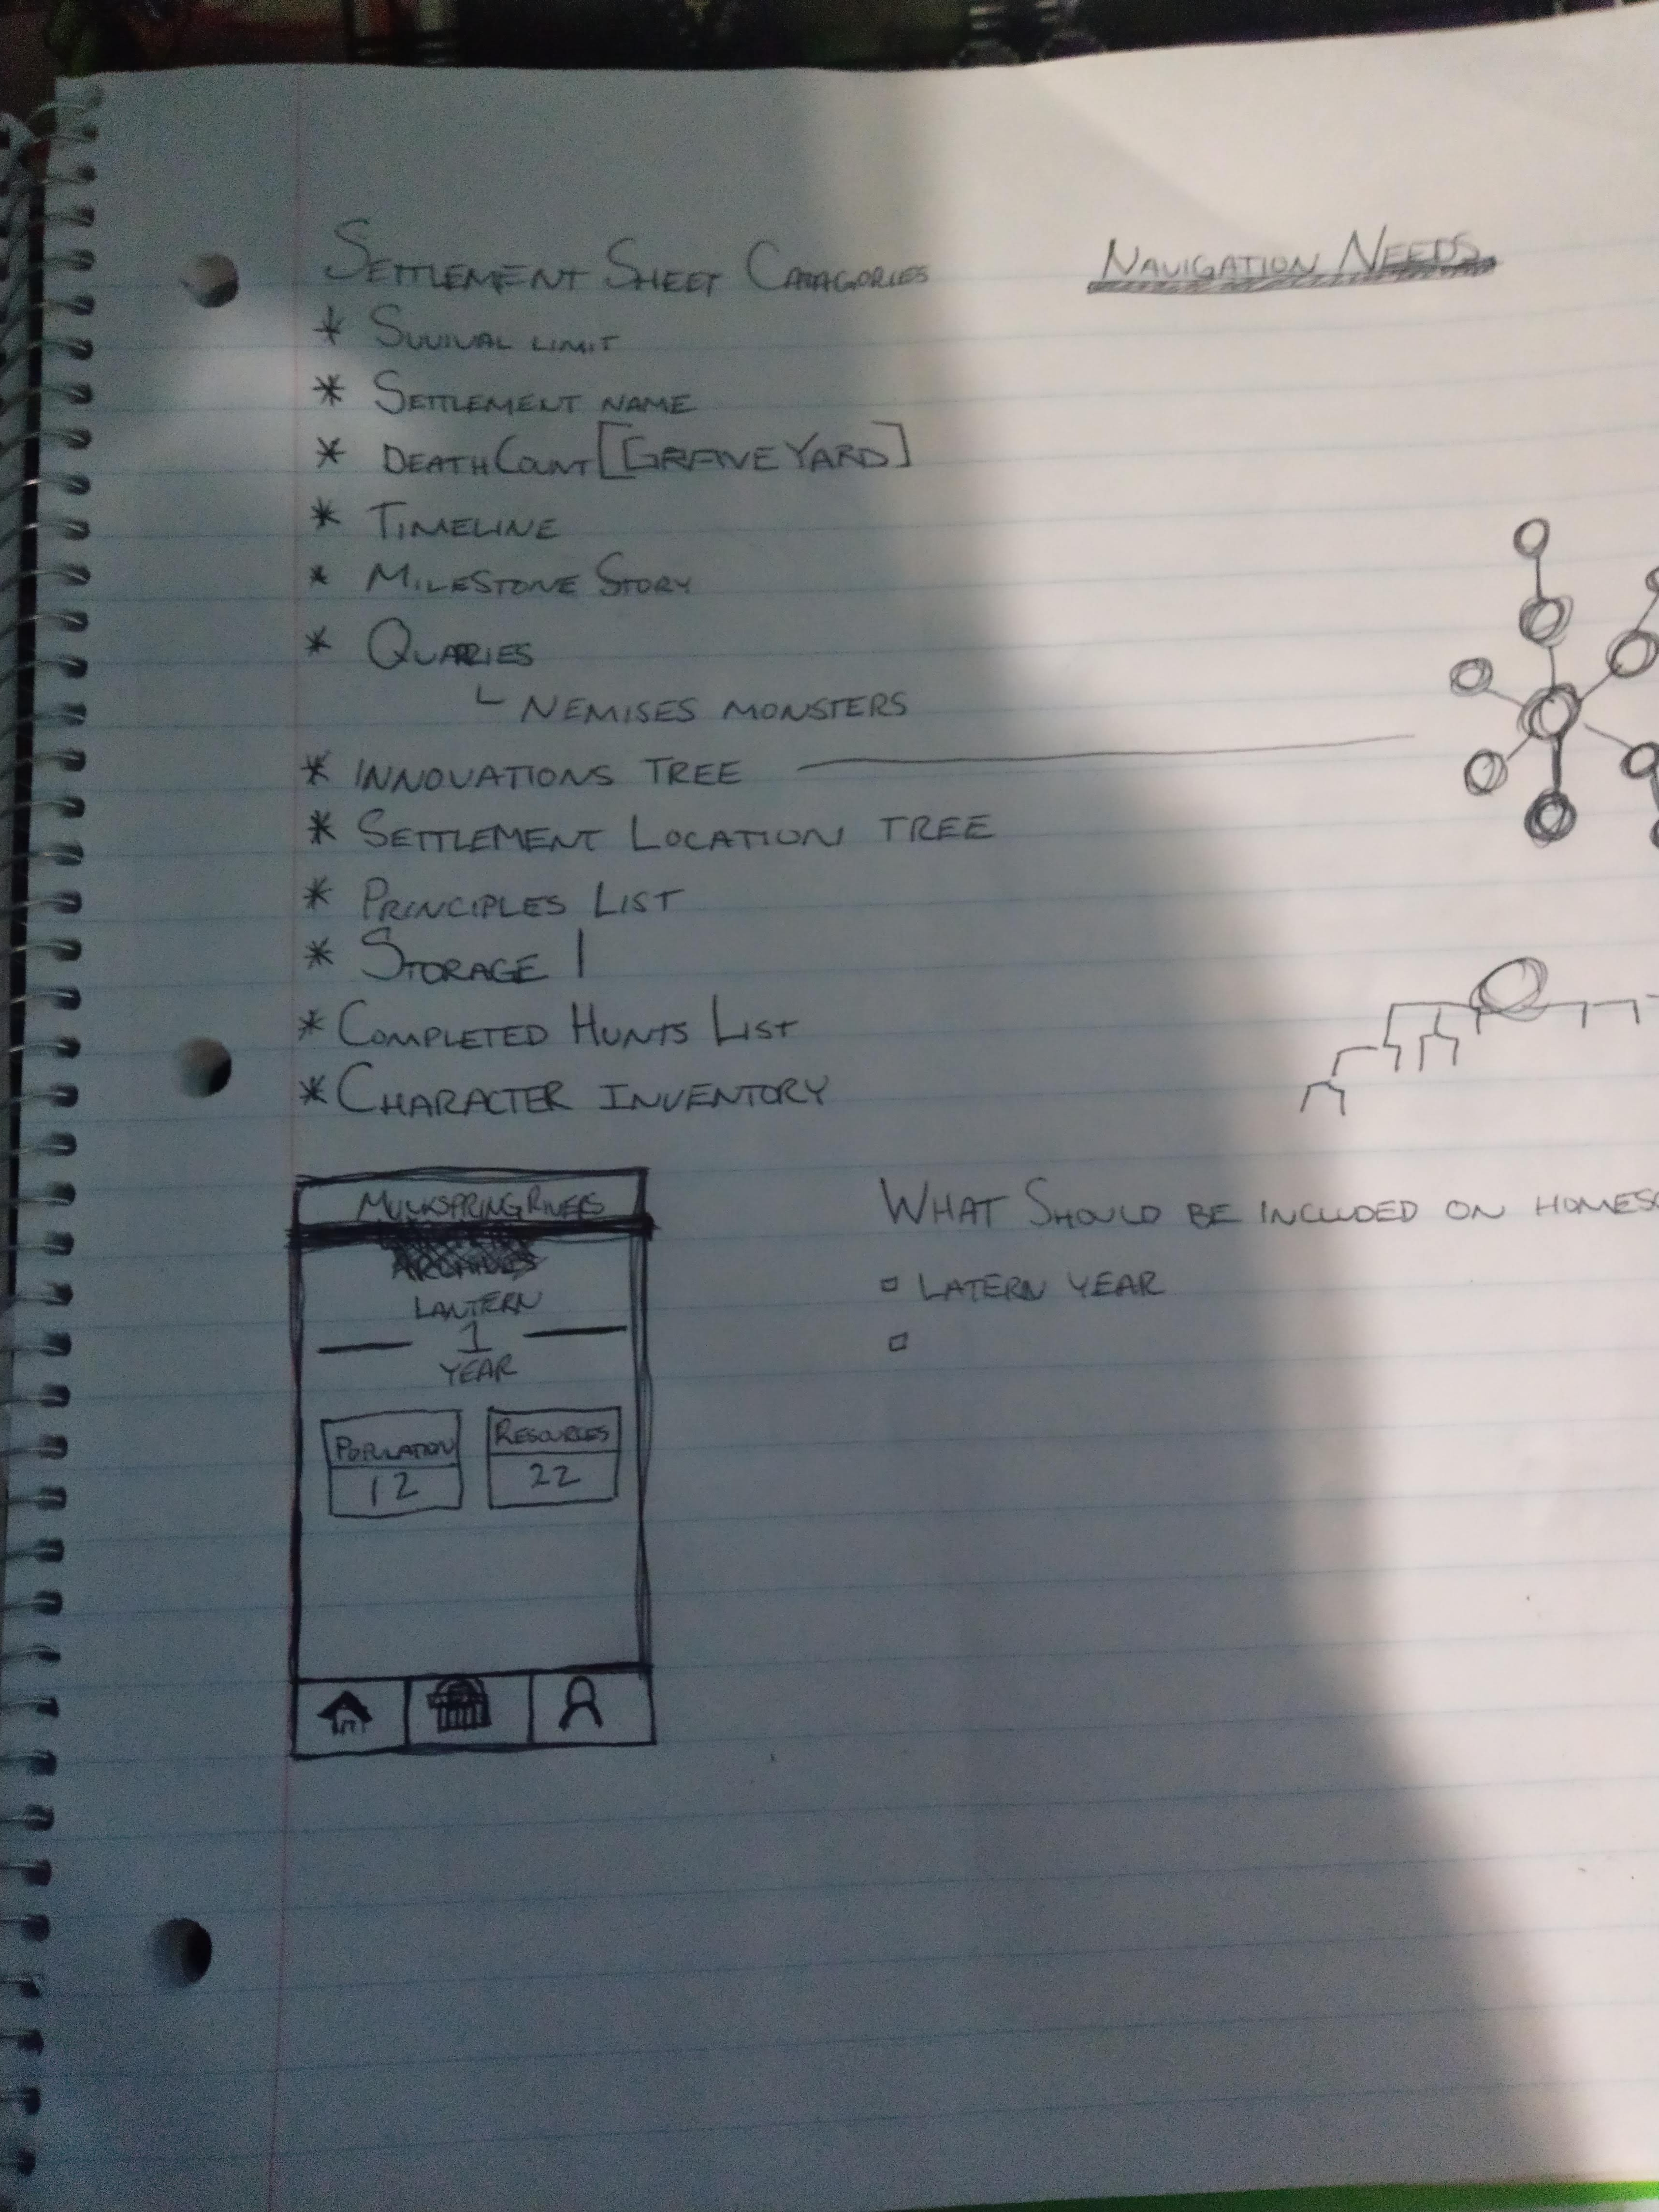 SETTLEMENT SHEET CATAGORIES
NAVIGATION NEEDS
* SUVIVAL LIMIT
* SETTLEMENT NAME
* DEATH COUNT [GRAVEYARD]
* TIMELINE
* MILESTONE STORY
* QUARRIES
└ NEMISES MONSTERS
* INNOVATIONS TREE
* SETTLEMENT LOCATION TREE
* PRINCIPLES LIST
* STORAGE |
* COMPLETED HUNTS LIST
* CHARACTER INVENTORY
RIVERS
ARCHIVES
LANTERN
1
YEAR
POPULATION
12
RESOURCES
22
WHAT SHOULD BE INCLUDED ON HOMESC
▫ LATERN YEAR
▫